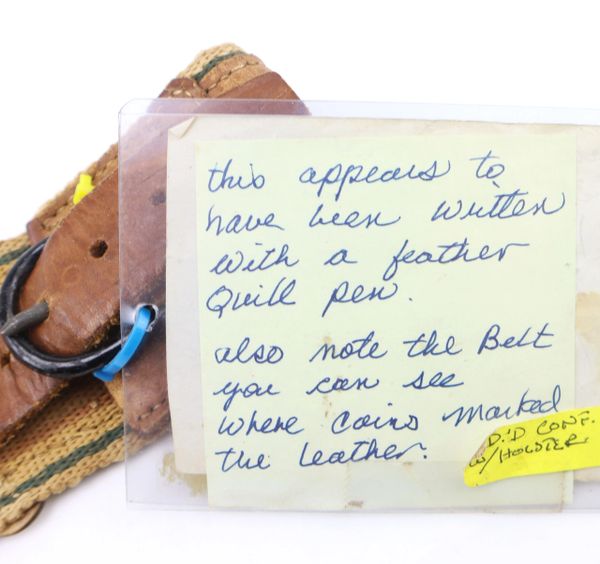 this appears to
have been written
with a feather
Quill pen.
also note the Belt
you can see
where coins marked
the leather.
D.'D CONF.
w/HOLSTER